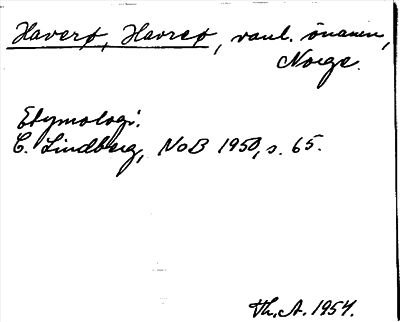 Haverø, Havrø, vanl. önamn,
Norge.
Etymologi.
C. Lindberg, NoB 1950, s. 65.
Th. A. 1954.